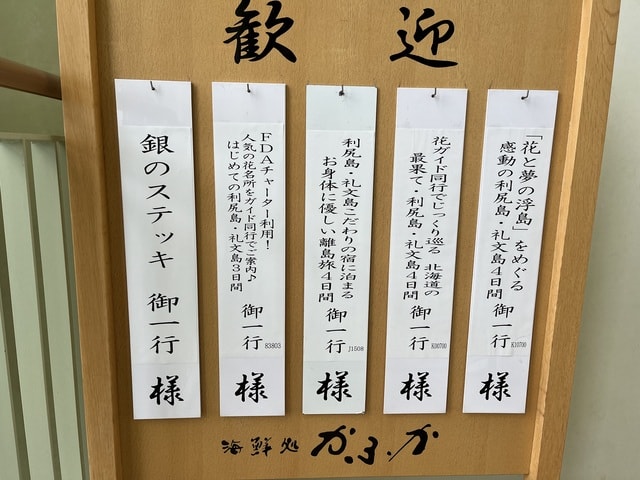 歓迎
「花と夢の浮島」をめぐる
感動の利尻島・礼文島4日間
御一行
K10700
様
花ガイド同行でじっくり巡る 北海道の
最果て・利尻島・礼文島4日間
御一行
K00700
様
利尻島・礼文島こだわりの宿に泊まる
お身体に優しい離島旅4日間
御一行
J1508
様
FDAチャーター利用!
人気の花名所をガイド同行でご案内♪
はじめての利尻島・礼文島3日間
御一行
83803
様
銀のステッキ 御一行
様
海鮮処 かふか